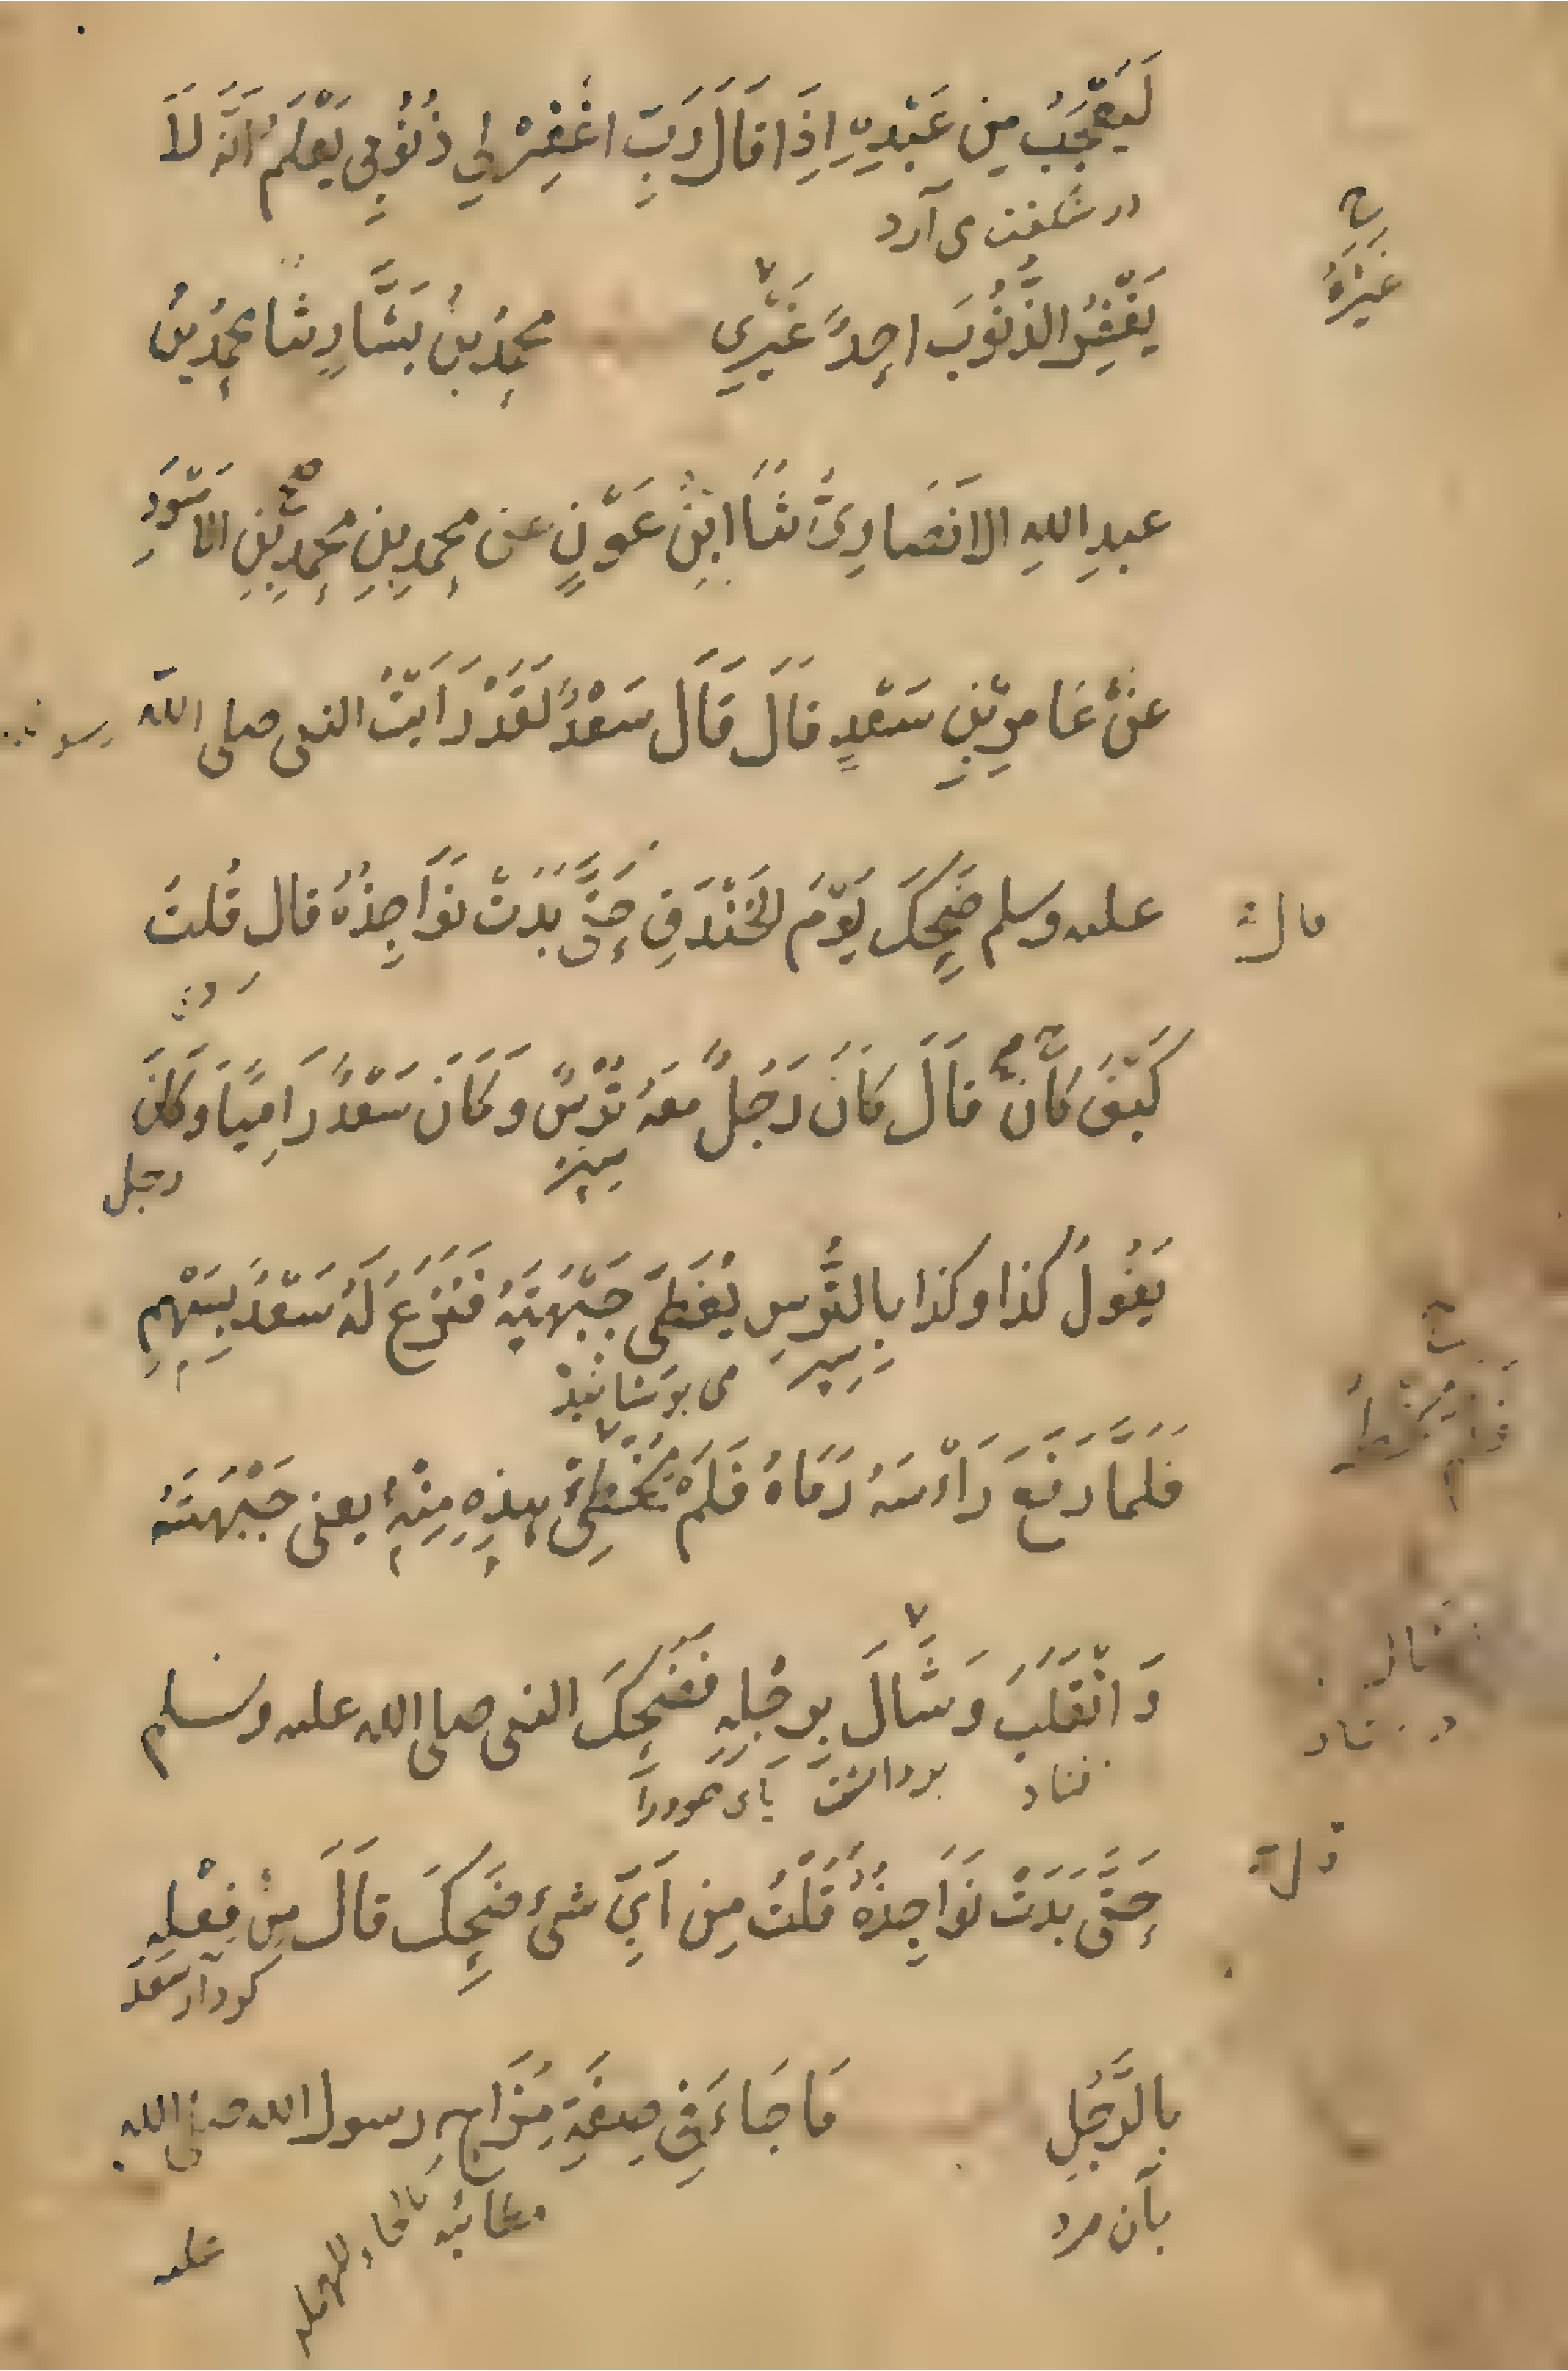 لَيَعْجَبُ مِن عَبْدِهِ اِذَا قَالَ رَبِّ اغْفِرْ لِي ذُنُوبِي يَعْلَمُ اَنَّهُ لَا
در شكفت مى آرد
غَيْرُهُ
يَغْفِرُ الذُّنُوبَ احدٌ غَيْرِي محمدُ بنُ بَشَّارٍ ثنا محمدُ بنُ
عبدِ اللهِ الانَصَارِىُّ ثَنَا ابنُ عَوْنٍ عن محمدِ بنِ محمدِ بْنِ الاَسْوَدِ
عَنْ عَامِرِ بْنِ سَعْدٍ قَالَ قَالَ سَعْدٌ لَقَدْ رَاَيْتُ النبى صلى الله
عليه وسلم ضَحِكَ يَوْمَ الخَنْدَقِ حَتَّى بَدَتْ نَوَاجِذُهُ قال قُلتُ
كَيْفَ كَانَ قَالَ كَانَ رَجُلٌ مَعَهُ تُرْسٌ وَكَانَ سَعْدٌ رَامِيًا وَكَانَ
سپر
رجل
يَقُولُ كذا وكذا بِالتُّرسِ يُغَطِّى جَبْهَتَهُ فَنَزَعَ لَهُ سَعْدٌ بِسَهْمٍ
سپر
مى پوشانيد
فَلَمَّا رَفَعَ رَاْسَهُ رَمَاهُ فَلَمْ يُخْطِئْ هذِهِ مِنْهُ يعنى جَبْهَتَهُ
وَانْقَلَبَ وَشَالَ بِرِجْلِهِ فَضَحِكَ النبى صلى الله عليه وسلم
برداشت پاى خودرا
حَتَّى بَدَتْ نَوَاجِذُهُ قُلْتُ مِن اَيِّ شىءٍ ضَحِكَ قَالَ مِنْ فِعْلِهِ
كردار سعد
بِالرَّجُلِ مَا جَاءَ فِى صِفَةِ مُزَاحِ رسول الله صلى الله
بآن مرد
عليه